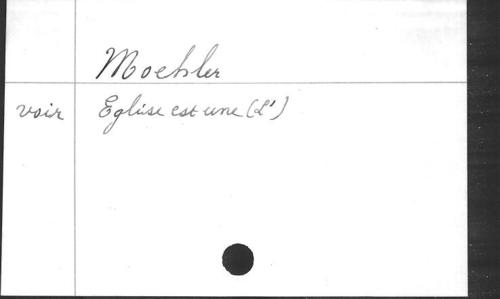 Moehler
voir Eglise est une (L')